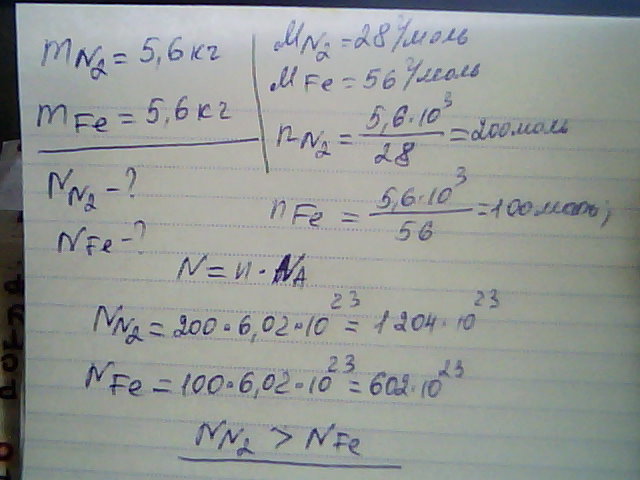 m N₂ = 5,6 кг
m Fe = 5,6 кг
N N₂ - ?
N Fe - ?
M N₂ = 28 г/моль
M Fe = 56 г/моль
n N₂ = 5,6·10³ / 28 = 200 моль
n Fe = 5,6·10³ / 56 = 100 моль;
N = n · N A
N N₂ = 200 · 6,02 · 10²³ = 1204 · 10²³
N Fe = 100 · 6,02 · 10²³ = 602 · 10²³
N N₂ > N Fe